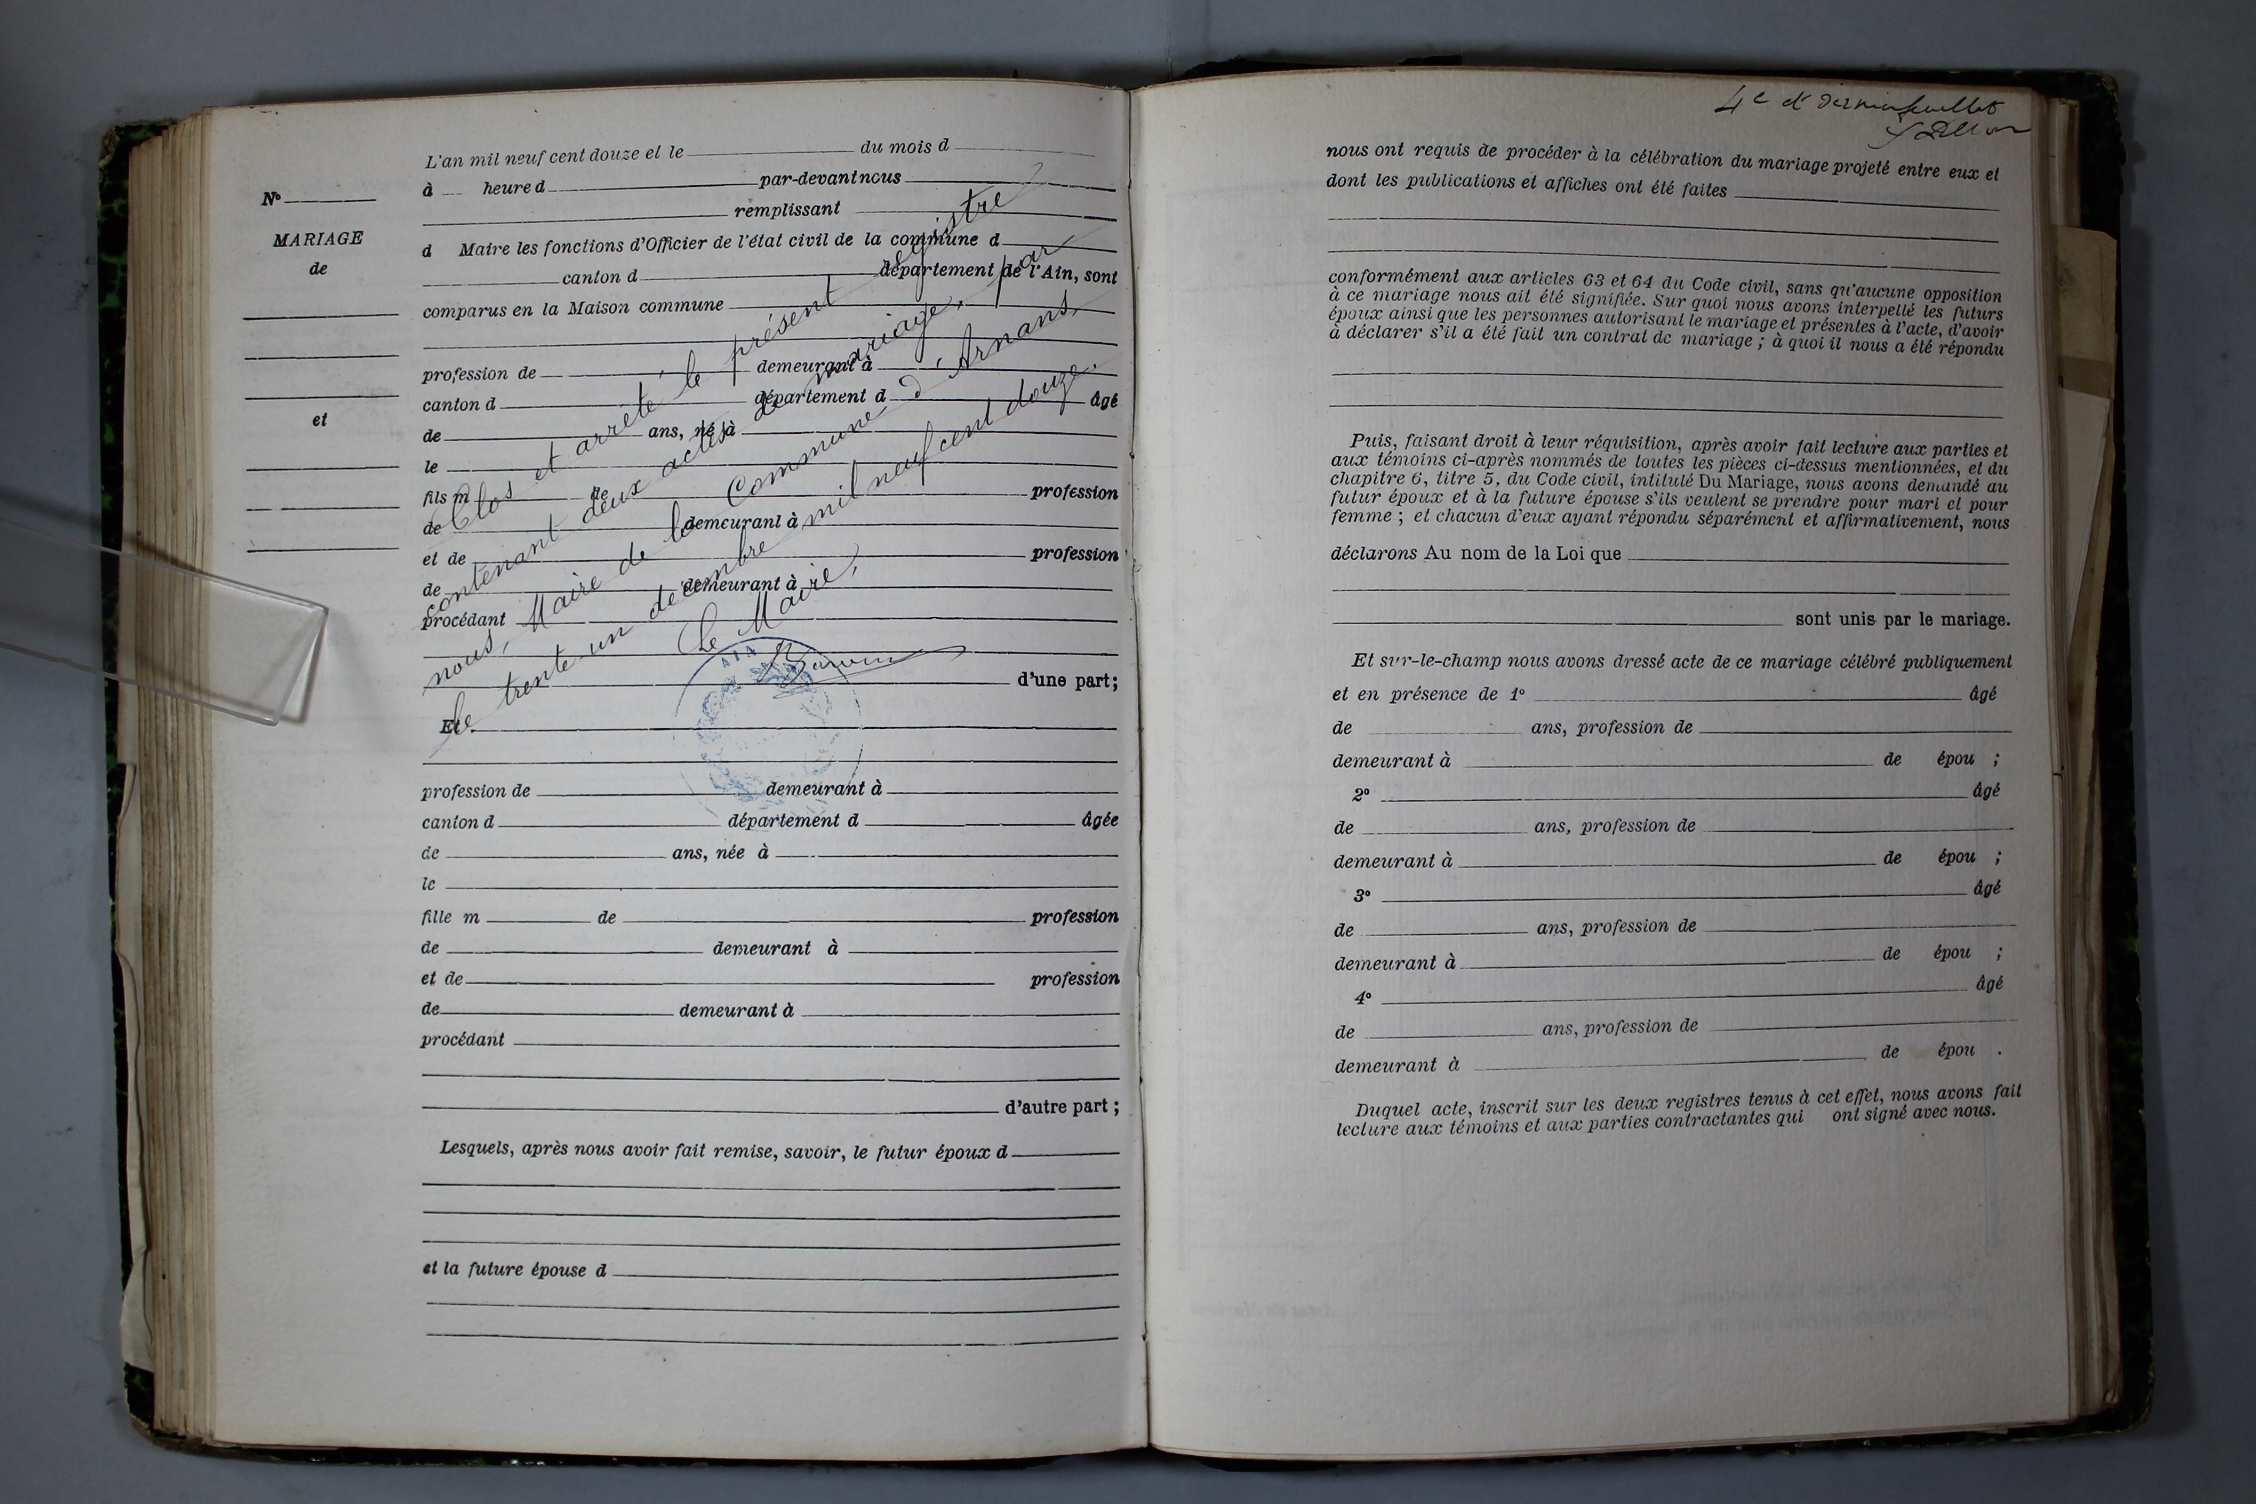 L'an mil neuf cent douze et le du mois d
à heure d par-devant nous
remplissant
d Maire les fonctions d'Officier de l'état civil de la commune d
canton d département de l'Ain, sont
comparus en la Maison commune
profession de demeurant à
canton d département d âgé
de ans, né à
le
fils m de profession
de demeurant à
et de profession
de demeurant à
procédant
d'une part;
Et
profession de demeurant à
canton d département d âgée
de ans, née à
le
fille m de profession
de demeurant à
et de profession
de demeurant à
procédant
d'autre part;
Lesquels, après nous avoir fait remise, savoir, le futur époux d
et la future épouse d
No
MARIAGE
de
et
Clos et arrêté le présent registre
contenant deux actes de mariage, par
nous, Maire de la Commune d'Arnans,
le trente-un décembre mil neuf cent douze.
Le Maire,
AIN
4e et dernier feuillet
nous ont requis de procéder à la célébration du mariage projeté entre eux et
dont les publications et affiches ont été faites
conformément aux articles 63 et 64 du Code civil, sans qu'aucune opposition
à ce mariage nous ait été signifiée. Sur quoi nous avons interpellé les futurs
époux ainsi que les personnes autorisant le mariage et présentes à l'acte, d'avoir
à déclarer s'il a été fait un contrat de mariage; à quoi il nous a été répondu
Puis, faisant droit à leur réquisition, après avoir fait lecture aux parties et
aux témoins ci-après nommés de toutes les pièces ci-dessus mentionnées, et du
chapitre 6, titre 5, du Code civil, intitulé Du Mariage, nous avons demandé au
futur époux et à la future épouse s'ils veulent se prendre pour mari et pour
femme; et chacun d'eux ayant répondu séparément et affirmativement, nous
déclarons Au nom de la Loi que
sont unis par le mariage.
Et sur-le-champ nous avons dressé acte de ce mariage célébré publiquement
et en présence de 1o âgé
de ans, profession de
demeurant à de épou ;
2o âgé
de ans, profession de
demeurant à de épou ;
3o âgé
de ans, profession de
demeurant à de épou ;
4o âgé
de ans, profession de
demeurant à de épou .
Duquel acte, inscrit sur les deux registres tenus à cet effet, nous avons fait
lecture aux témoins et aux parties contractantes qui ont signé avec nous.